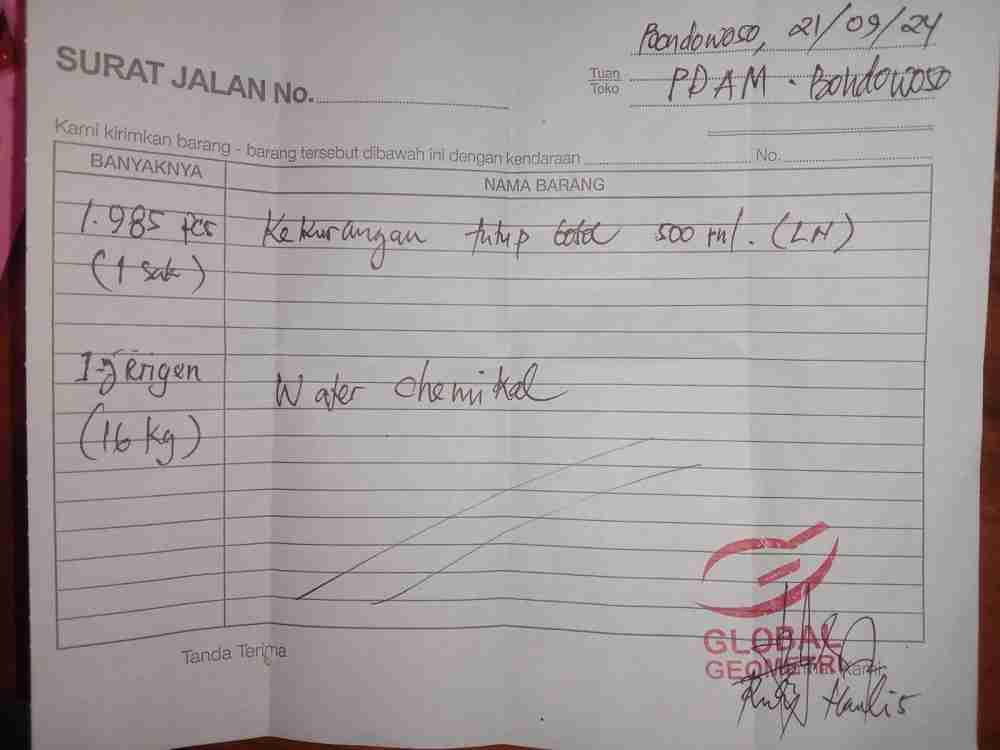 Bondowoso, 21/09/24
SURAT JALAN No.
Tuan
Toko
PDAM . Bondowoso
Kami kirimkan barang - barang tersebut dibawah ini dengan kendaraan No.
BANYAKNYA NAMA BARANG
1.985 pcs Kekurangan tutup botol 500 ml. (LN)
(1 sak)
1 Jerigen Water chemikal
(16 kg)
Tanda Terima
GLOBAL
GEOMETRI